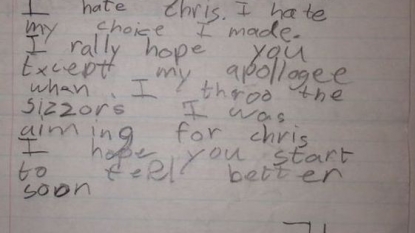 I hate Chris. I hate
my choice I made.
I rally hope you
Except my apollagee
when I throo the
sizzors I was
aiming for chris
I hope you start
to feel better
soon